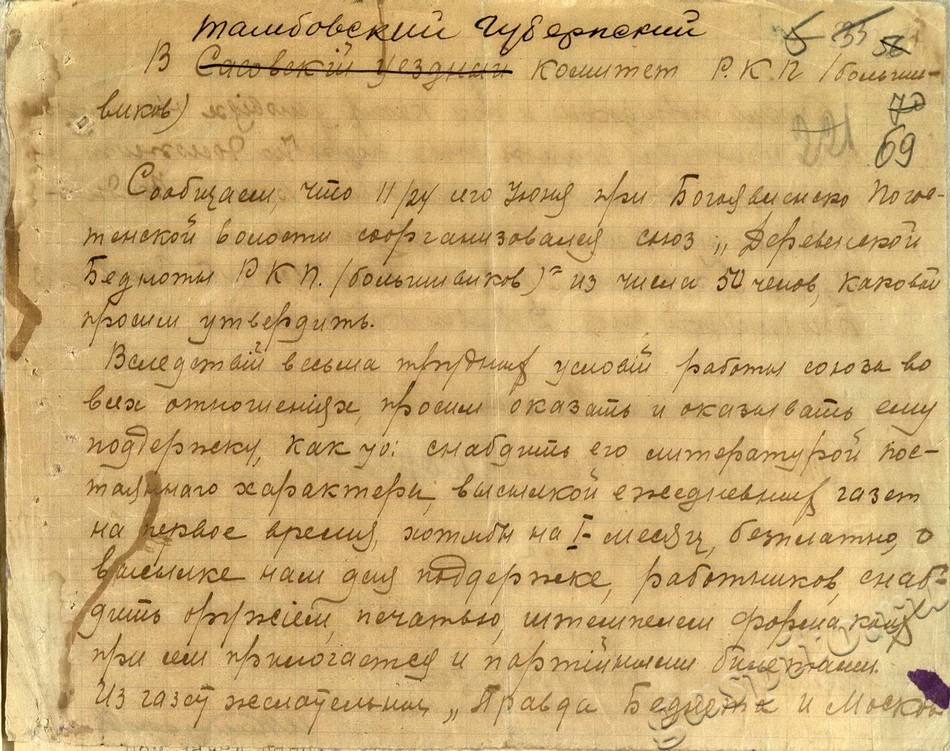 Тамбовский Губернский
5 35 58
В Сасовскiй уездный комитет Р.К.П /больше-
виков)
70
69
Сообщаем, что 11/24 его Июня при Богоявленско-Погос-
тенской волости соорганизовался союз „Деревенской
Бедноты Р.К.П. /большевиков)" из числа 50 челов, каковой
просим утвердить.
Вследствiй весьма трудных условiй работы союза во
всех отношенiях, просим оказать и оказывать ему
поддержку, как то: снабдить его литературой пос-
тояннаго характера, высылкой ежедневных газет
на первое время, хотябы на I- месяц, безплатно, о
высылке нам для поддержке, работников, снаб-
дить оружiем, печатью, штемпелем форма коих
при сем прилогается и партiйными билетами.
Из газет желательны, „Правда Беднета и Москов